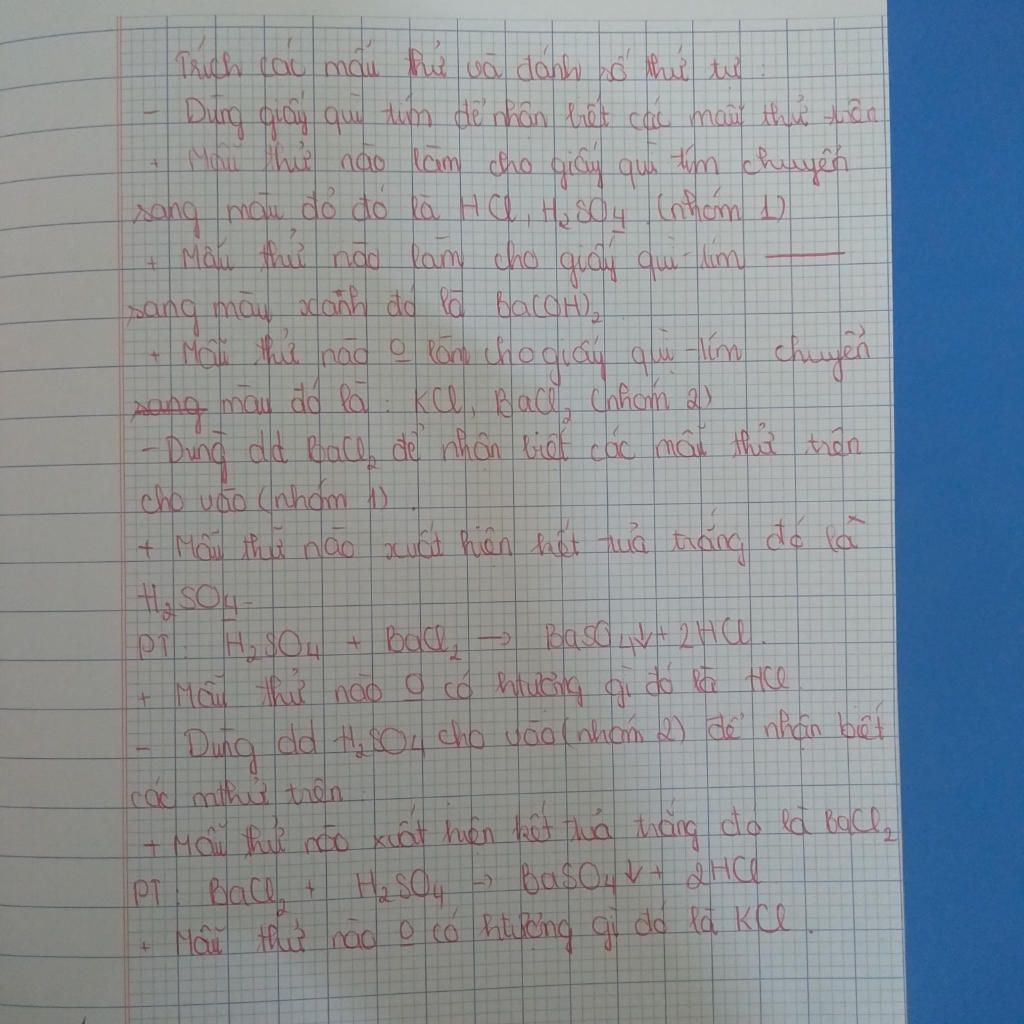 Trích các mẫu thử và đánh số thứ tự.
- Dùng giấy quì tím để nhận biết các mẫu thử trên
+ Mẫu thử nào làm cho giấy quì tím chuyển
sang màu đỏ đó là HCl, H₂SO₄ (nhóm 1)
+ Mẫu thử nào làm cho giấy quì tím ———
sang màu xanh đó là Ba(OH)₂
+ Mẫu thử nào 0 làm cho giấy quì tím chuyển
sang màu đó là : KCl, BaCl₂ (nhóm 2)
- Dùng dd BaCl₂ để nhận biết các mẫu thử trên
cho vào (nhóm 1).
+ Mẫu thử nào xuất hiện kết tủa trắng đó là
H₂SO₄
PT: H₂SO₄ + BaCl₂ → BaSO₄↓ + 2HCl
+ Mẫu thử nào 0 có htượng gì đó là HCl
- Dùng dd H₂SO₄ cho vào (nhóm 2) để nhận biết
các mthử trên.
+ Mẫu thử nào xuất hiện kết tủa trắng đó là BaCl₂
PT: BaCl₂ + H₂SO₄ → BaSO₄↓ + 2HCl
+ Mẫu thử nào 0 có htượng gì đó là KCl.